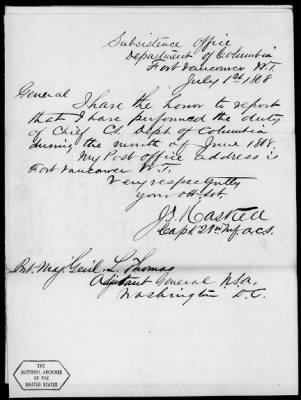 Subsistence Office
Department of Columbia
Fort Vancouver W.T.
July 1st 1868
General
I have the honor to report
that I have performed the duty
of Chief C.S. Dept of Columbia
during the month of June 1868.
My Post office address is
Fort Vancouver W.T.
Very respectfully
Your obt. svt.
J.G. Haskell
Capt. 21st Inf. a.c.s.
Bvt. Maj. Genl. L. Thomas
Adjutant General U.S.A.
Washington D.C.
THE
NATIONAL ARCHIVES
OF THE
UNITED STATES